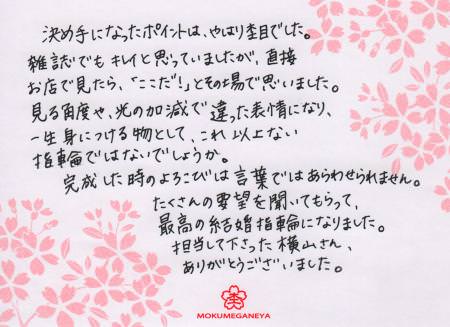 決め手になったポイントは、やはり杢目でした。
雑誌でも キレイと思っていましたが、直接
お店で見たら、「ここだ！」とその場で思いました。
見る角度や、光の加減で 違った表情になり、
一生身につける物として、これ以上ない
指輪ではないでしょうか。
完成した時のよろこびは言葉ではあらわせられません。
たくさんの要望を聞いてもらって、
最高の結婚指輪になりました。
担当して下さった横山さん、
ありがとうございました。
杢
MOKUMEGANEYA